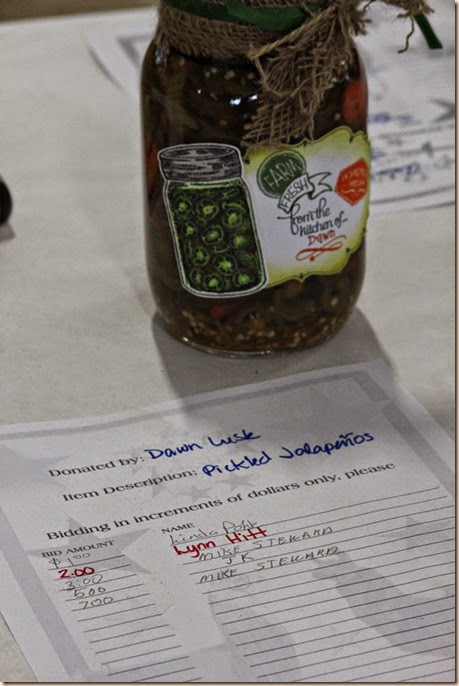 FARM
FRESH
from the
kitchen of...
Dawn
Donated by: Dawn Lusk
Item Description: Pickled Jalapeños
Bidding in increments of dollars only, please
BID AMOUNT NAME
$1.00 Linda Pohk
2.00 Lynn Hitt
3:00 MIKE STEWARD
500 JK
700 MIKE STEWARD